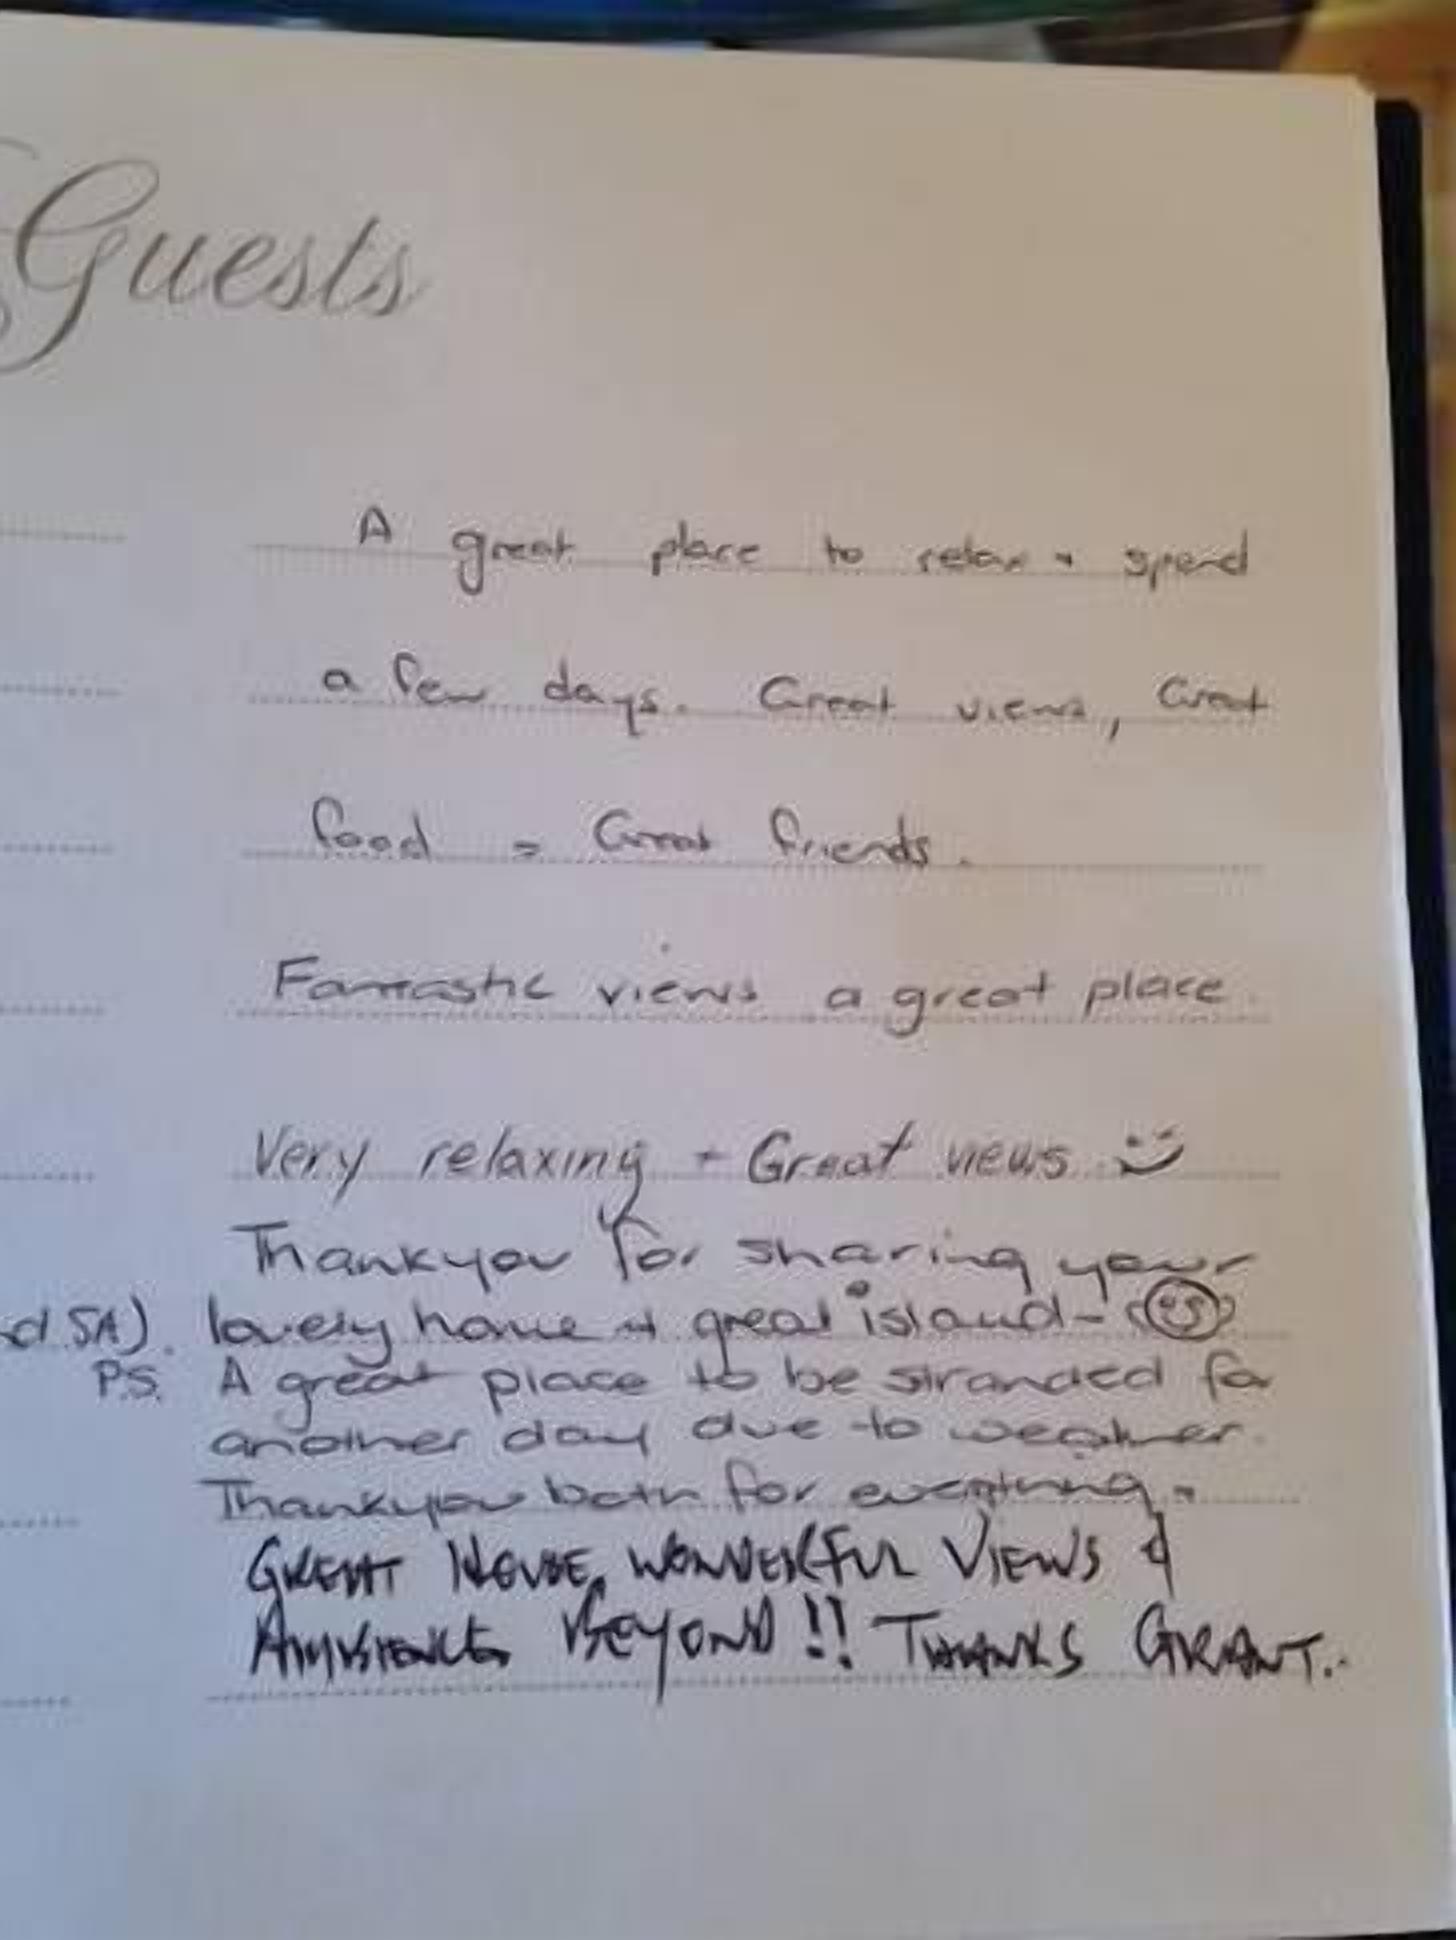 Guests
A great place to relax + spend
a few days. Great views, Great
food = Great friends.
Fantastic views a great place
Very relaxing + Great views
Thankyou for sharing your
d SA). lovely home + great island -
P.S. A great place to be stranded for
another day due to weather.
Thankyou both for everything.
GREAT HOUSE, WONDERFUL VIEWS &
AMBIENCE BEYOND!! THANKS GRANT..